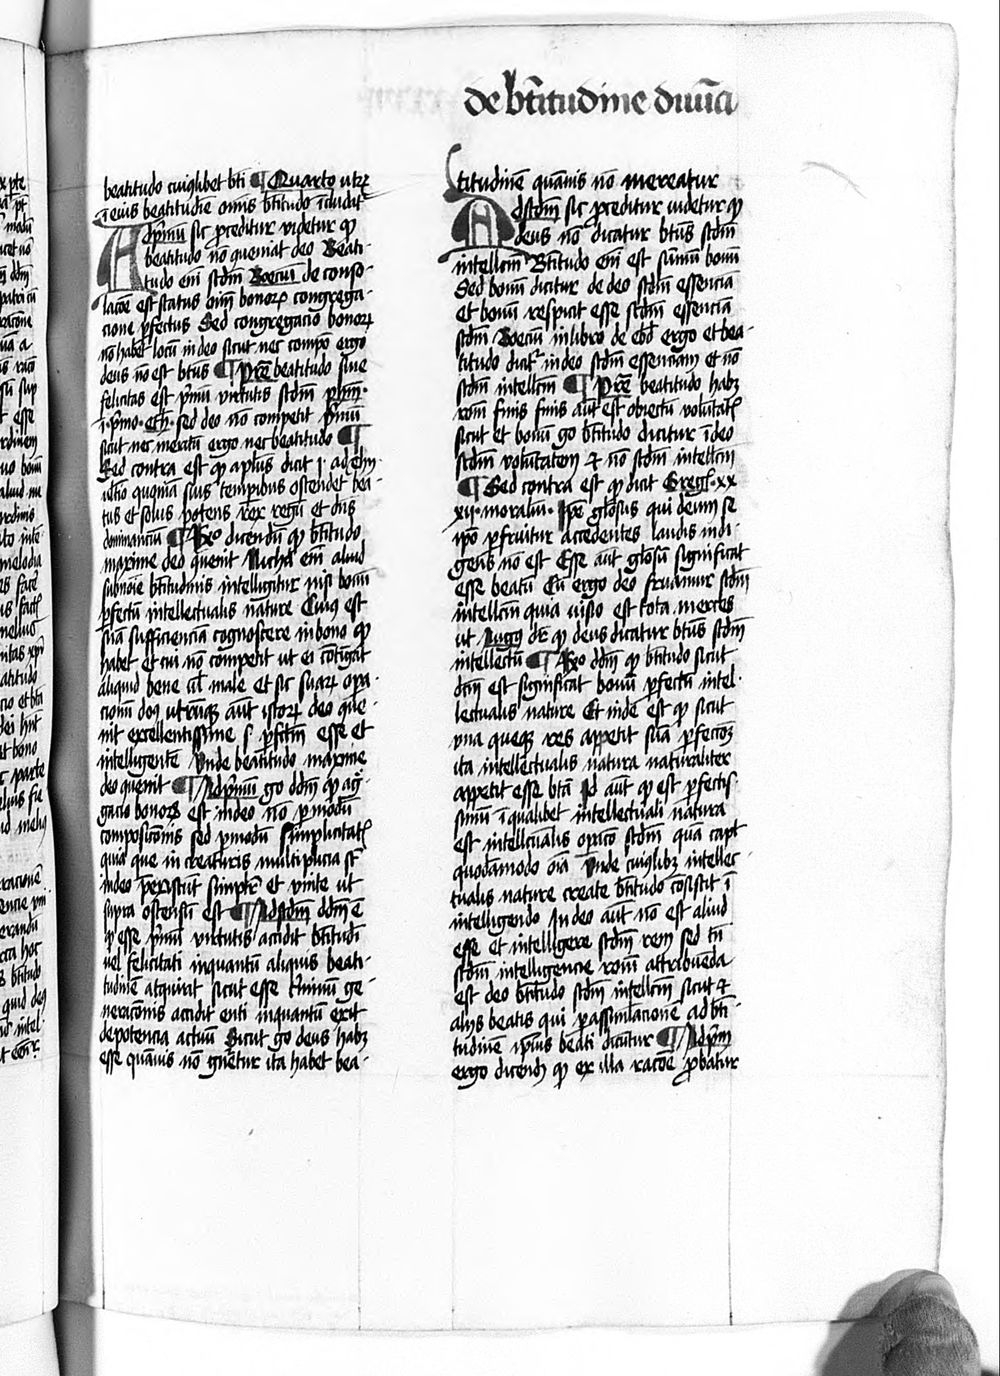 de btitudine diuina
beatitudo cuiuslibet bti ¶ Quarto utrum
i eius beatitudine omnis btitudo icludatur
Ad pmu sic proceditur videtur qp
beatitudo no queniat deo Beati-
tudo em scdm Boeciu de conso-
lacoe est status oim bonoꝝ congrega-
cione pfectus Sed congregacio bonoꝝ
no habet locu in deo sicut nec compo ergo
deus no est btus ¶ Prete beatitudo siue
felicitas est pmiu virtutis scdm phm.
i. pmo. eth. sed deo no competit pmiu
sicut nec meritu ergo nec beatitudo ¶
Sed contra est qp aplus dicit i. ad thi.
vltio quoniam suis temporibus ostendet bea-
tus et solus potens rex regu et dns
dominanciu ¶ Rno dicendu qp btitudo
maxime deo quenit Nichil em aliud
sub noie btitudinis intelligitur nisi bonu
pfectu intellectualis nature Cuius est
sua sufficiencia cognoscere in bono qp
habet et cui no competit ut ei cotigat
aliquid bene ul male et sit suaꝝ opa-
cionu dns utrumque aut istoꝝ deo que-
nit excellentissime s. pfctm esse et
intelligente Vnde beatitudo maxime
deo quenit ¶ Ad pmu go ddm qp ag-
gacio bonoꝝ est in deo no p modu
composicionis sed p modu simplicitatis
quia que in creaturis multiplicia st
in deo preexistut simplr et vnite ut
supra ostensu est ¶ Ad scdm ddm e
qp esse pmiu virtutis accidit btitudi
uel felicitati inquantu aliquis beati-
tudine atquirit sicut esse tminu ge-
neracionis accidit enti inquantu exit
de potencia actum Sicut go deus habz
esse quauis no gnetur ita habet bea-
titudine quauis no mereatur
Ad scdm sic proceditur videtur qp
deus no dicatur btus scdm
intellcm Btitudo em est summu bonu
Sed bonu dicitur de deo scdm essencia
et bonu respicit esse scdm essencia
scdm Boeciu in libro de ebd ergo et bea-
titudo dicitr in deo scdm essenciam et no
scdm intellcm ¶ Prete beatitudo habz
rom finis finis aut est obiectu volutatis
sicut et bonu go btitudo dicitur i deo
scdm voluntatem et no scdm intellcm
¶ Sed contra est qp dicit Gregs. xx
xij. moraliu. Ipe gliosus qui deum se
ipo pfruitur accedentes laudis indi-
gens no est Esse aut gliosu significat
esse beatu Cu ergo deo fruamur scdm
intellcm quia visio est tota merces
ut Augs dt qp deus dicatur btus scdm
intellectu ¶ Rno ddm qp btitudo sicut
dcm est significat bonu pfectu intel-
lectualis nature Et inde est qp sicut
vna queque res appetit sua pfectioez
ita intellectualis natura naturaliter
appetit esse bta Id aut qp est pfectis-
simu i qualibet intellectuali natura
est intellectualis opaco scdm qua capit
quodamodo oia Vnde cuiuslibz intellec-
tualis nature create btitudo cosistit i
intelligendo In deo aut no est aliud
esse et intelligere scdm rem sed tm
scdm intelligencie rom attribuenda
est deo btitudo scdm intellcm sicut et
aliis beatis qui p assimilacione ad bti-
tudine ipius beati dicutur ¶ Ad pm
ergo dicend qp ex illa racoe probatur